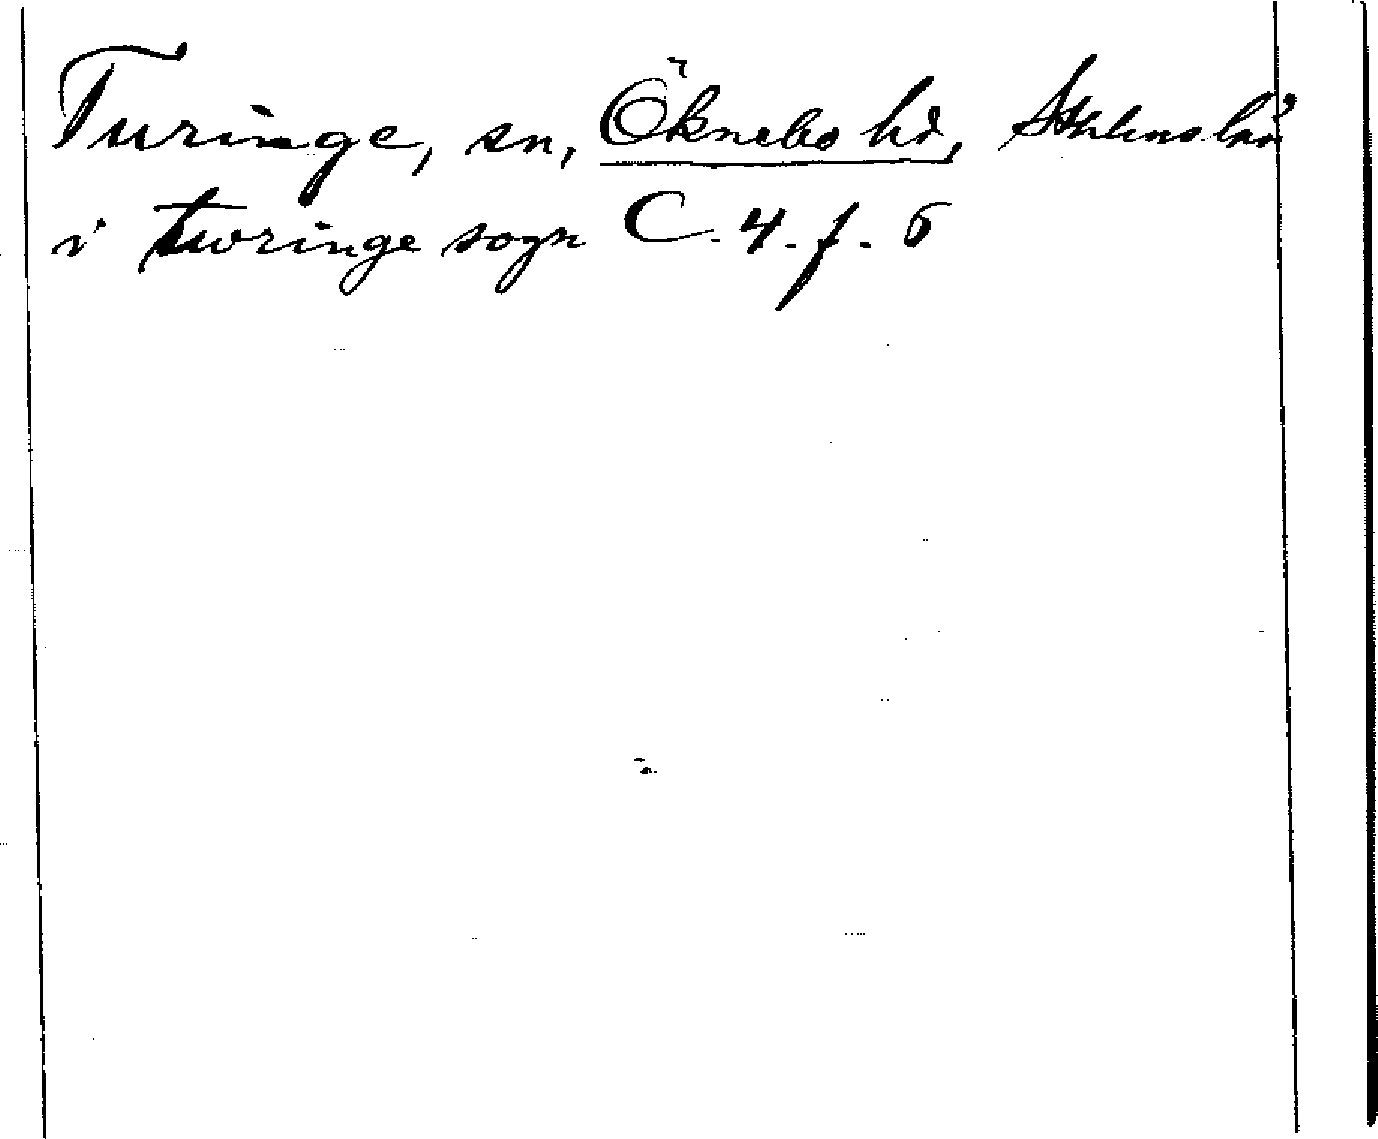 Turinge, sn, Öknebo hd, Sthlms län
i twringe sogn C. 4. f. 6